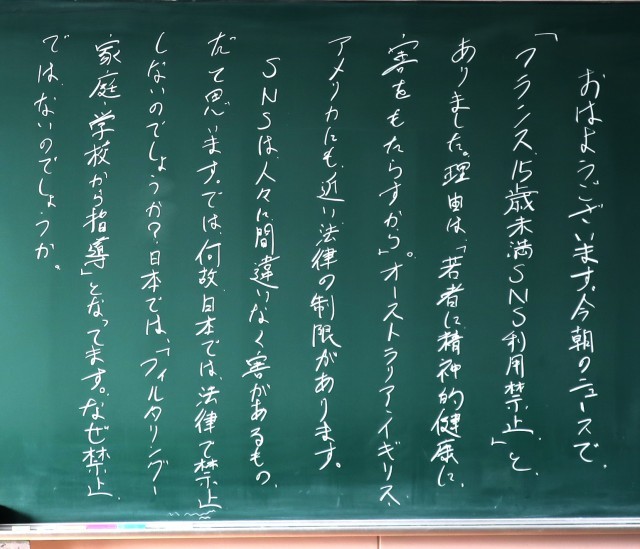 おはようございます。今朝のニュースで、
「フランス、15歳未満SNS利用禁止。」と、
ありました。理由は、「若者に、精神的健康に、
害をもたらすから」。オーストラリア、イギリス、
アメリカにも、近い法律の制限があります。
SNSは、人々に間違いなく害があるもの、
だて思います。では何故、日本では、法律で禁止
しないのでしょうか？日本では、「フィルタリング」
家庭・学校から指導」となってます。なぜ禁止、
では、ないのでしょうか。